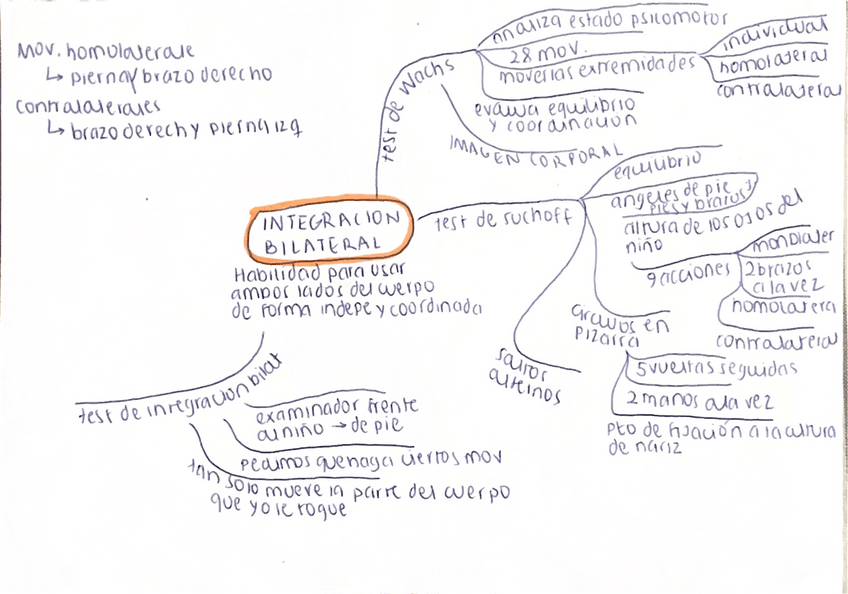 Mov. homolaterale
↳ pierna y brazo derecho
contralaterales
↳ brazo derech y pierna izq
test de Wachs
Analiza estado psicomotor
28 mov.
mover las extremidades
individual
homolateral
contralateral
evalua equilibrio
y coordinación
IMAGEN CORPORAL
INTEGRACION
BILATERAL
Habilidad para usar
ambos lados del cuerpo
de forma indepe y coordinada
test de suchoff
equilibrio
angeles de pie
pies y brazos
altura de los ojos del
niño
9 acciones
monolater
2 brazos
a la vez
homolatera
contralateral
circulos en
pizarra
5 vueltas seguidas
2 manos a la vez
pto de fijación a la altura
de nariz
saltos
alternos
test de integracion bilat
examinador frente
al niño → de pie
pedimos que haga ciertos mov
tan solo mueve la parte del cuerpo
que yo le toque